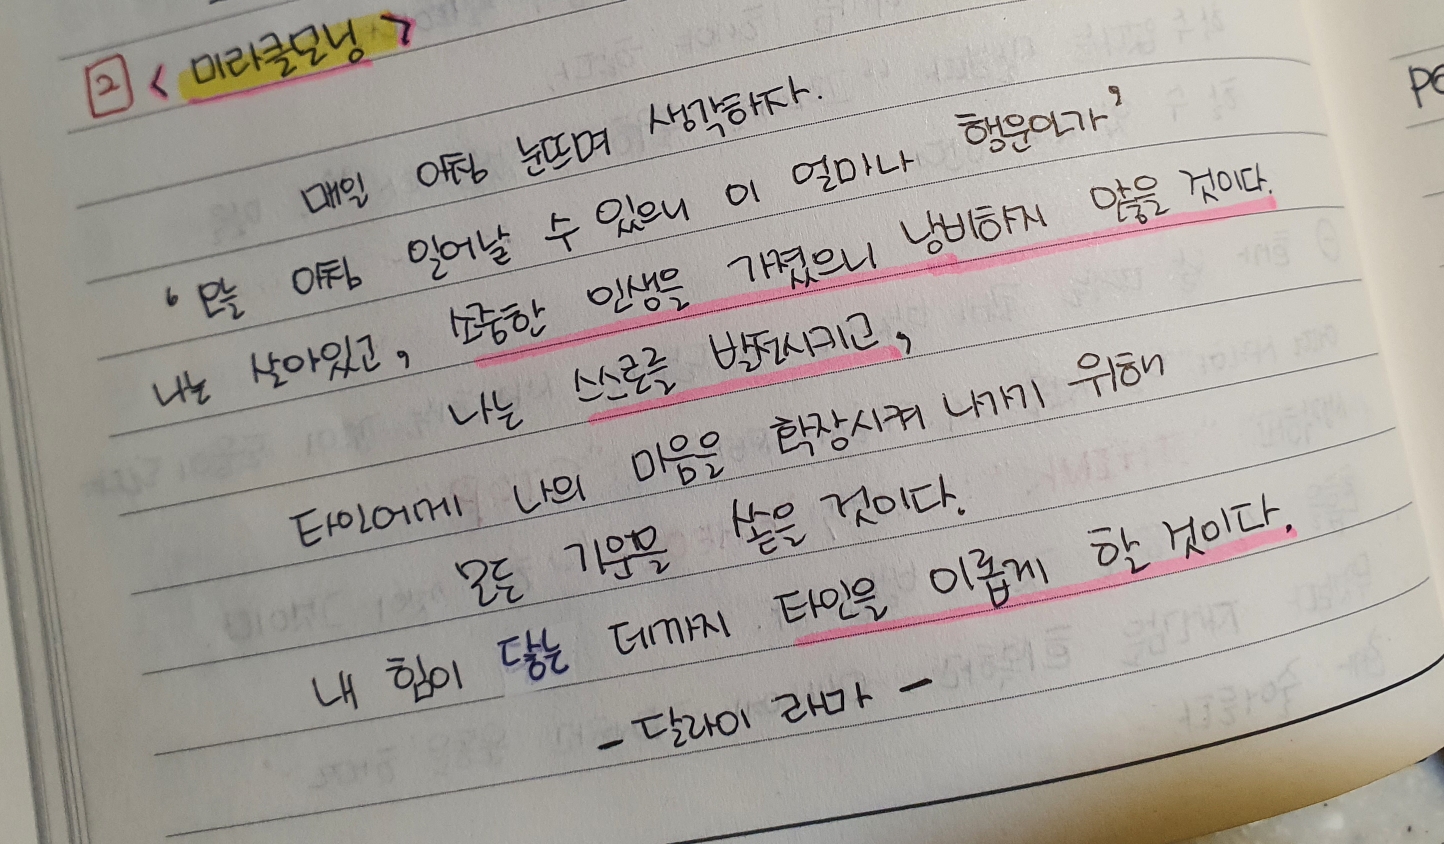 2 < 미라클모닝 >
매일 아침 눈뜨며 생각하자.
' 오늘 아침 일어날 수 있으니 이 얼마나 행운인가 '
나는 살아있고, 소중한 인생을 가졌으니 낭비하지 않을 것이다.
나는 스스로를 발전시키고,
타인에게 나의 마음을 확장시켜 나가기 위해
모든 기운을 쏟을 것이다.
내 힘이 닿는 데까지 타인을 이롭게 할 것이다.
- 달라이 라마 -